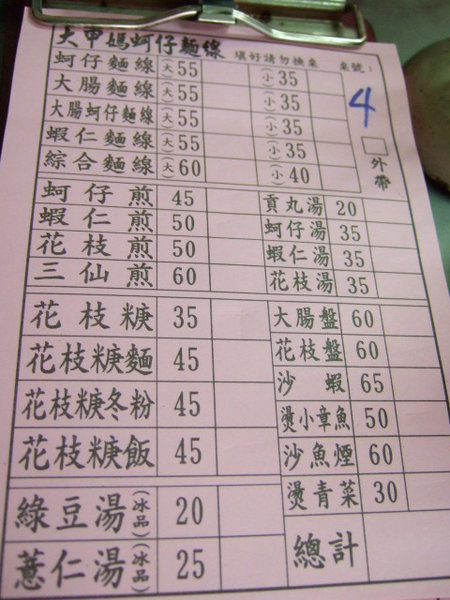 大甲媽蚵仔麵線 填好請勿換桌 桌號：4
蚵仔麵線 (大) 55 (小) 35
大腸麵線 (大) 55 (小) 35
大腸蚵仔麵線 (大) 55 (小) 35
蝦仁麵線 (大) 55 (小) 35
綜合麵線 (大) 60 (小) 40
外帶
蚵仔煎 45
蝦仁煎 50
花枝煎 50
三仙煎 60
貢丸湯 20
蚵仔湯 35
蝦仁湯 35
花枝湯 35
花枝糖 35
花枝糖麵 45
花枝糖冬粉 45
花枝糖飯 45
大腸盤 60
花枝盤 60
沙蝦 65
燙小章魚 50
沙魚煙 60
燙青菜 30
綠豆湯(冰品) 20
薏仁湯(冰品) 25
總計